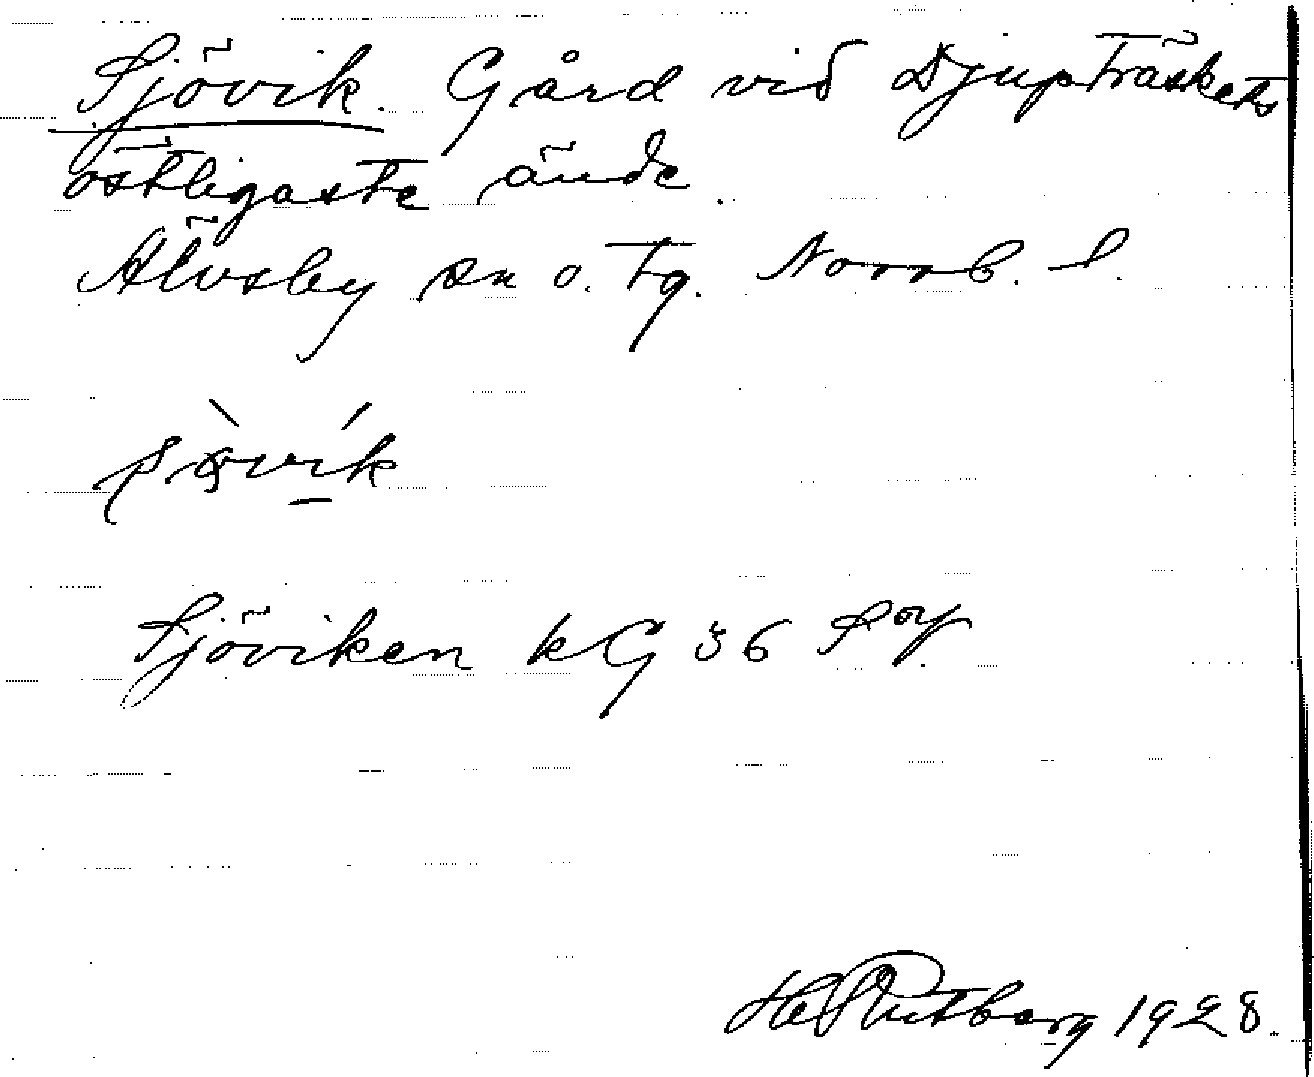 Sjövik. Gård vid Djupträskets
östligaste ände.
Älvsby sn o. tg. Norrb. l.
Sjöviken kG 36
Rutberg 1928.